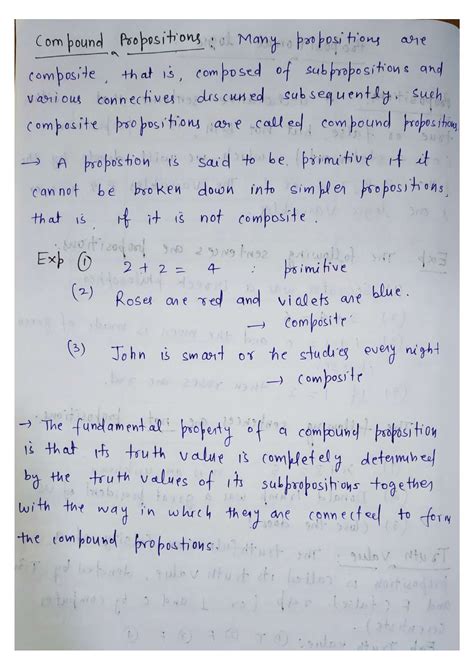 Compound Propositions : Many propositions are
composite, that is, composed of subpropositions and
various connectives discussed subsequently. Such
composite propositions are called compound propositions
→ A propostion is said to be primitive if it
cannot be broken down into simpler propositions,
that is if it is not composite.
Exp (1) 2 + 2 = 4 : primitive
(2) Roses are red and vialets are blue.
→ composite
(3) John is smart or he studies every night
→ composite
→ The fundamental property of a compound proposition
is that its truth value is completely determined
by the truth values of its subpropositions together
with the way in which they are connected to form
the compound propostions.